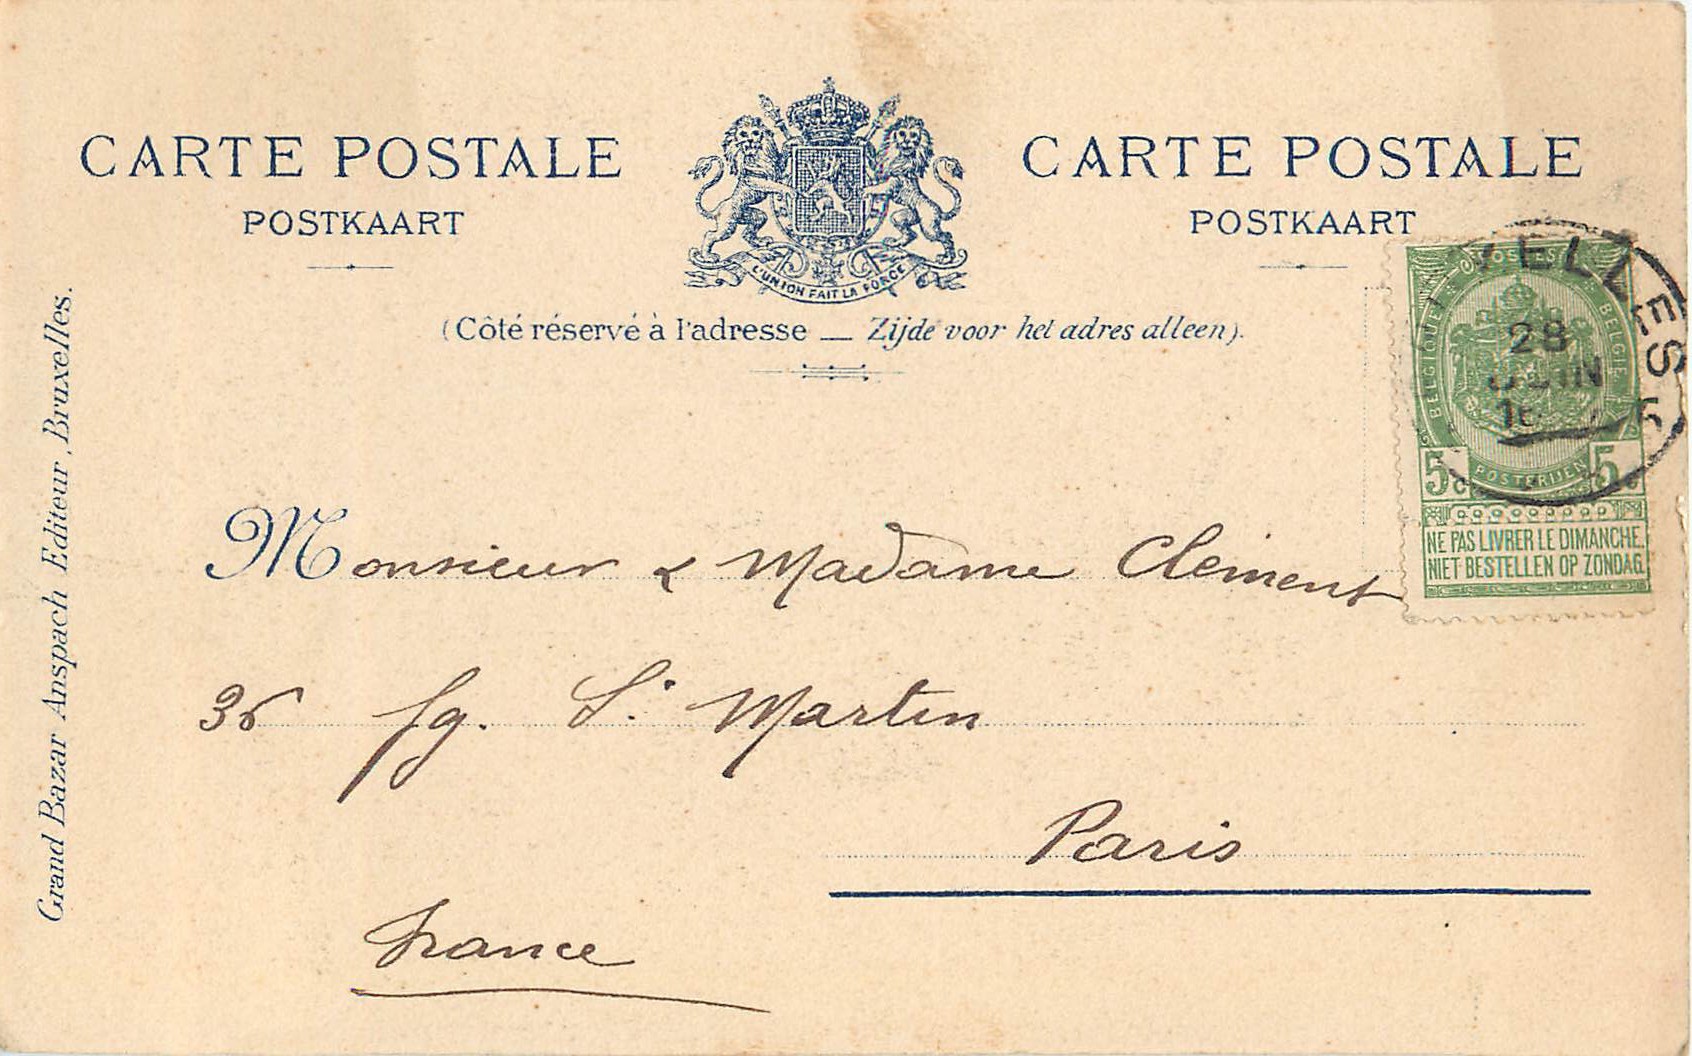 CARTE POSTALE
POSTKAART
CARTE POSTALE
POSTKAART
L'UNION FAIT LA FORCE
(Côté réservé à l'adresse — Zijde voor het adres alleen).
Grand Bazar Anspach Editeur, Bruxelles.
POSTES
BELGIQUE
BELGIE
POSTERIJEN
5c 5
NE PAS LIVRER LE DIMANCHE.
NIET BESTELLEN OP ZONDAG.
ELLES
28
JUIN
Monsieur & Madame Clement
36 fg. St. Martin
Paris
France